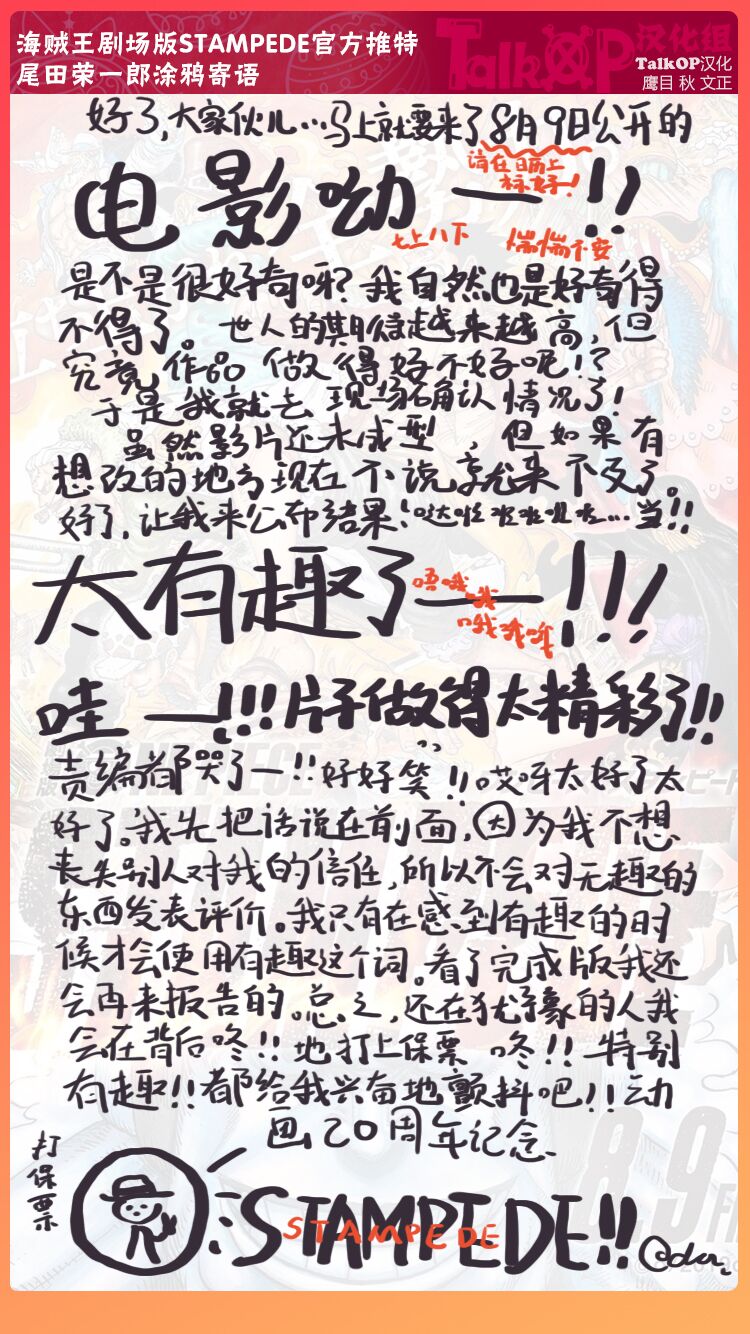 海贼王剧场版STAMPEDE官方推特
尾田荣一郎涂鸦寄语
TalkOP汉化组
TalkOP汉化
鹰目 秋 文正
好了,大家伙儿…马上就要来了8月9日公开的
请在日历上
标好!
电影呦一!!
七上八下
惴惴不安
是不是很好奇呀?我自然也是好奇得
不得了。世人的期待越来越高,但
究竟作品做得好不好呢!?
于是我就去现场确认情况了!
虽然影片还未成型,但如果有
想改的地方现在不说就来不及了。
好了,让我来公布结果!哒啦啦啦啦啦…当!!
太有趣了一!!!
唔哦
哦
哦哦哦
哇一!!!片子做得太精彩了!!
责编都哭了一!!好好笑!!哎呀太好了太
好了。我先把话说在前面,因为我不想
丧失别人对我的信任,所以不会对无趣的
东西发表评价。我只有在感到有趣的时
候才会使用有趣这个词。看了完成版我还
会再来报告的。总之,还在犹豫的人我
会在背后咚!!地打上保票 咚!!特别
有趣!!都给我兴奋地颤抖吧!!动
画20周年纪念
打保票
STAMPEDE!!
STAMPEDE
8.9